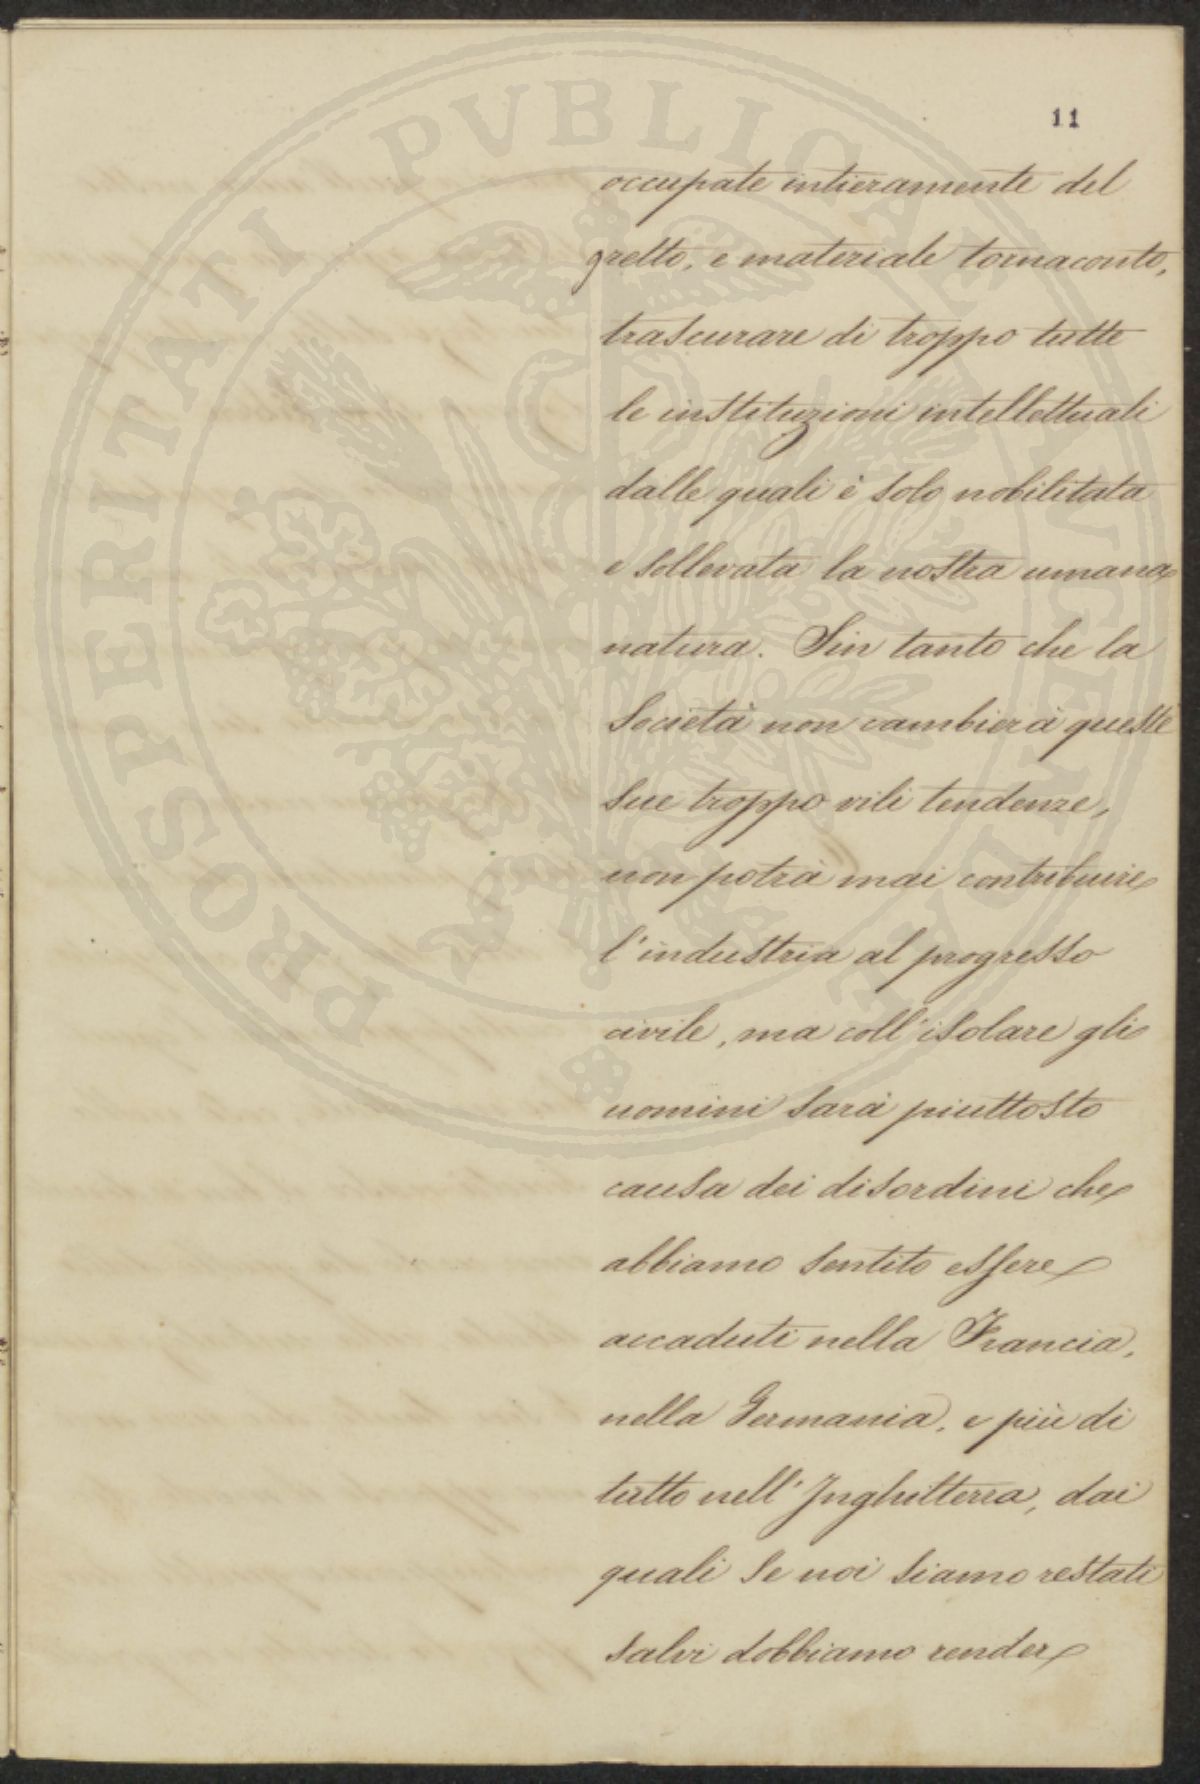 PROSPERITATI PUBLICAE AUGENDAE
11
occupate intieramente del
gretto, e materiale tornaconto,
trascurare di troppo tutte
le instituzioni intellettuali
dalle quali è solo nobilitata
e sollevata la nostra umana
natura. Sin tanto che la
Società non cambierà queste
sue troppo vili tendenze,
non potrà mai contribuire
l'industria al progresso
civile, ma coll'isolare gli
uomini sarà piuttosto
causa dei disordini che
abbiamo sentito essere
accaduti nella Francia,
nella Germania, e più di
tutto nell'Inghilterra, dai
quali se noi siamo restati
salvi dobbiamo render